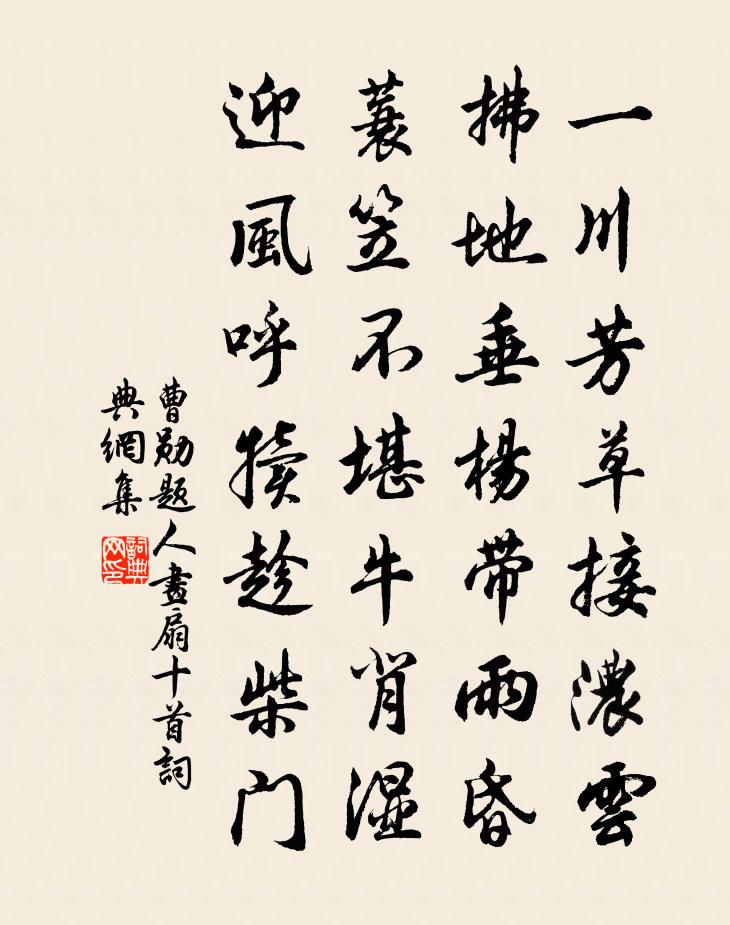 一川芳草接濃雲
拂地垂楊帶雨昏
蓑笠不堪牛背濕
迎風呼犢趁柴門
曹勛題人畫扇十首詞
典網集
詞典網印